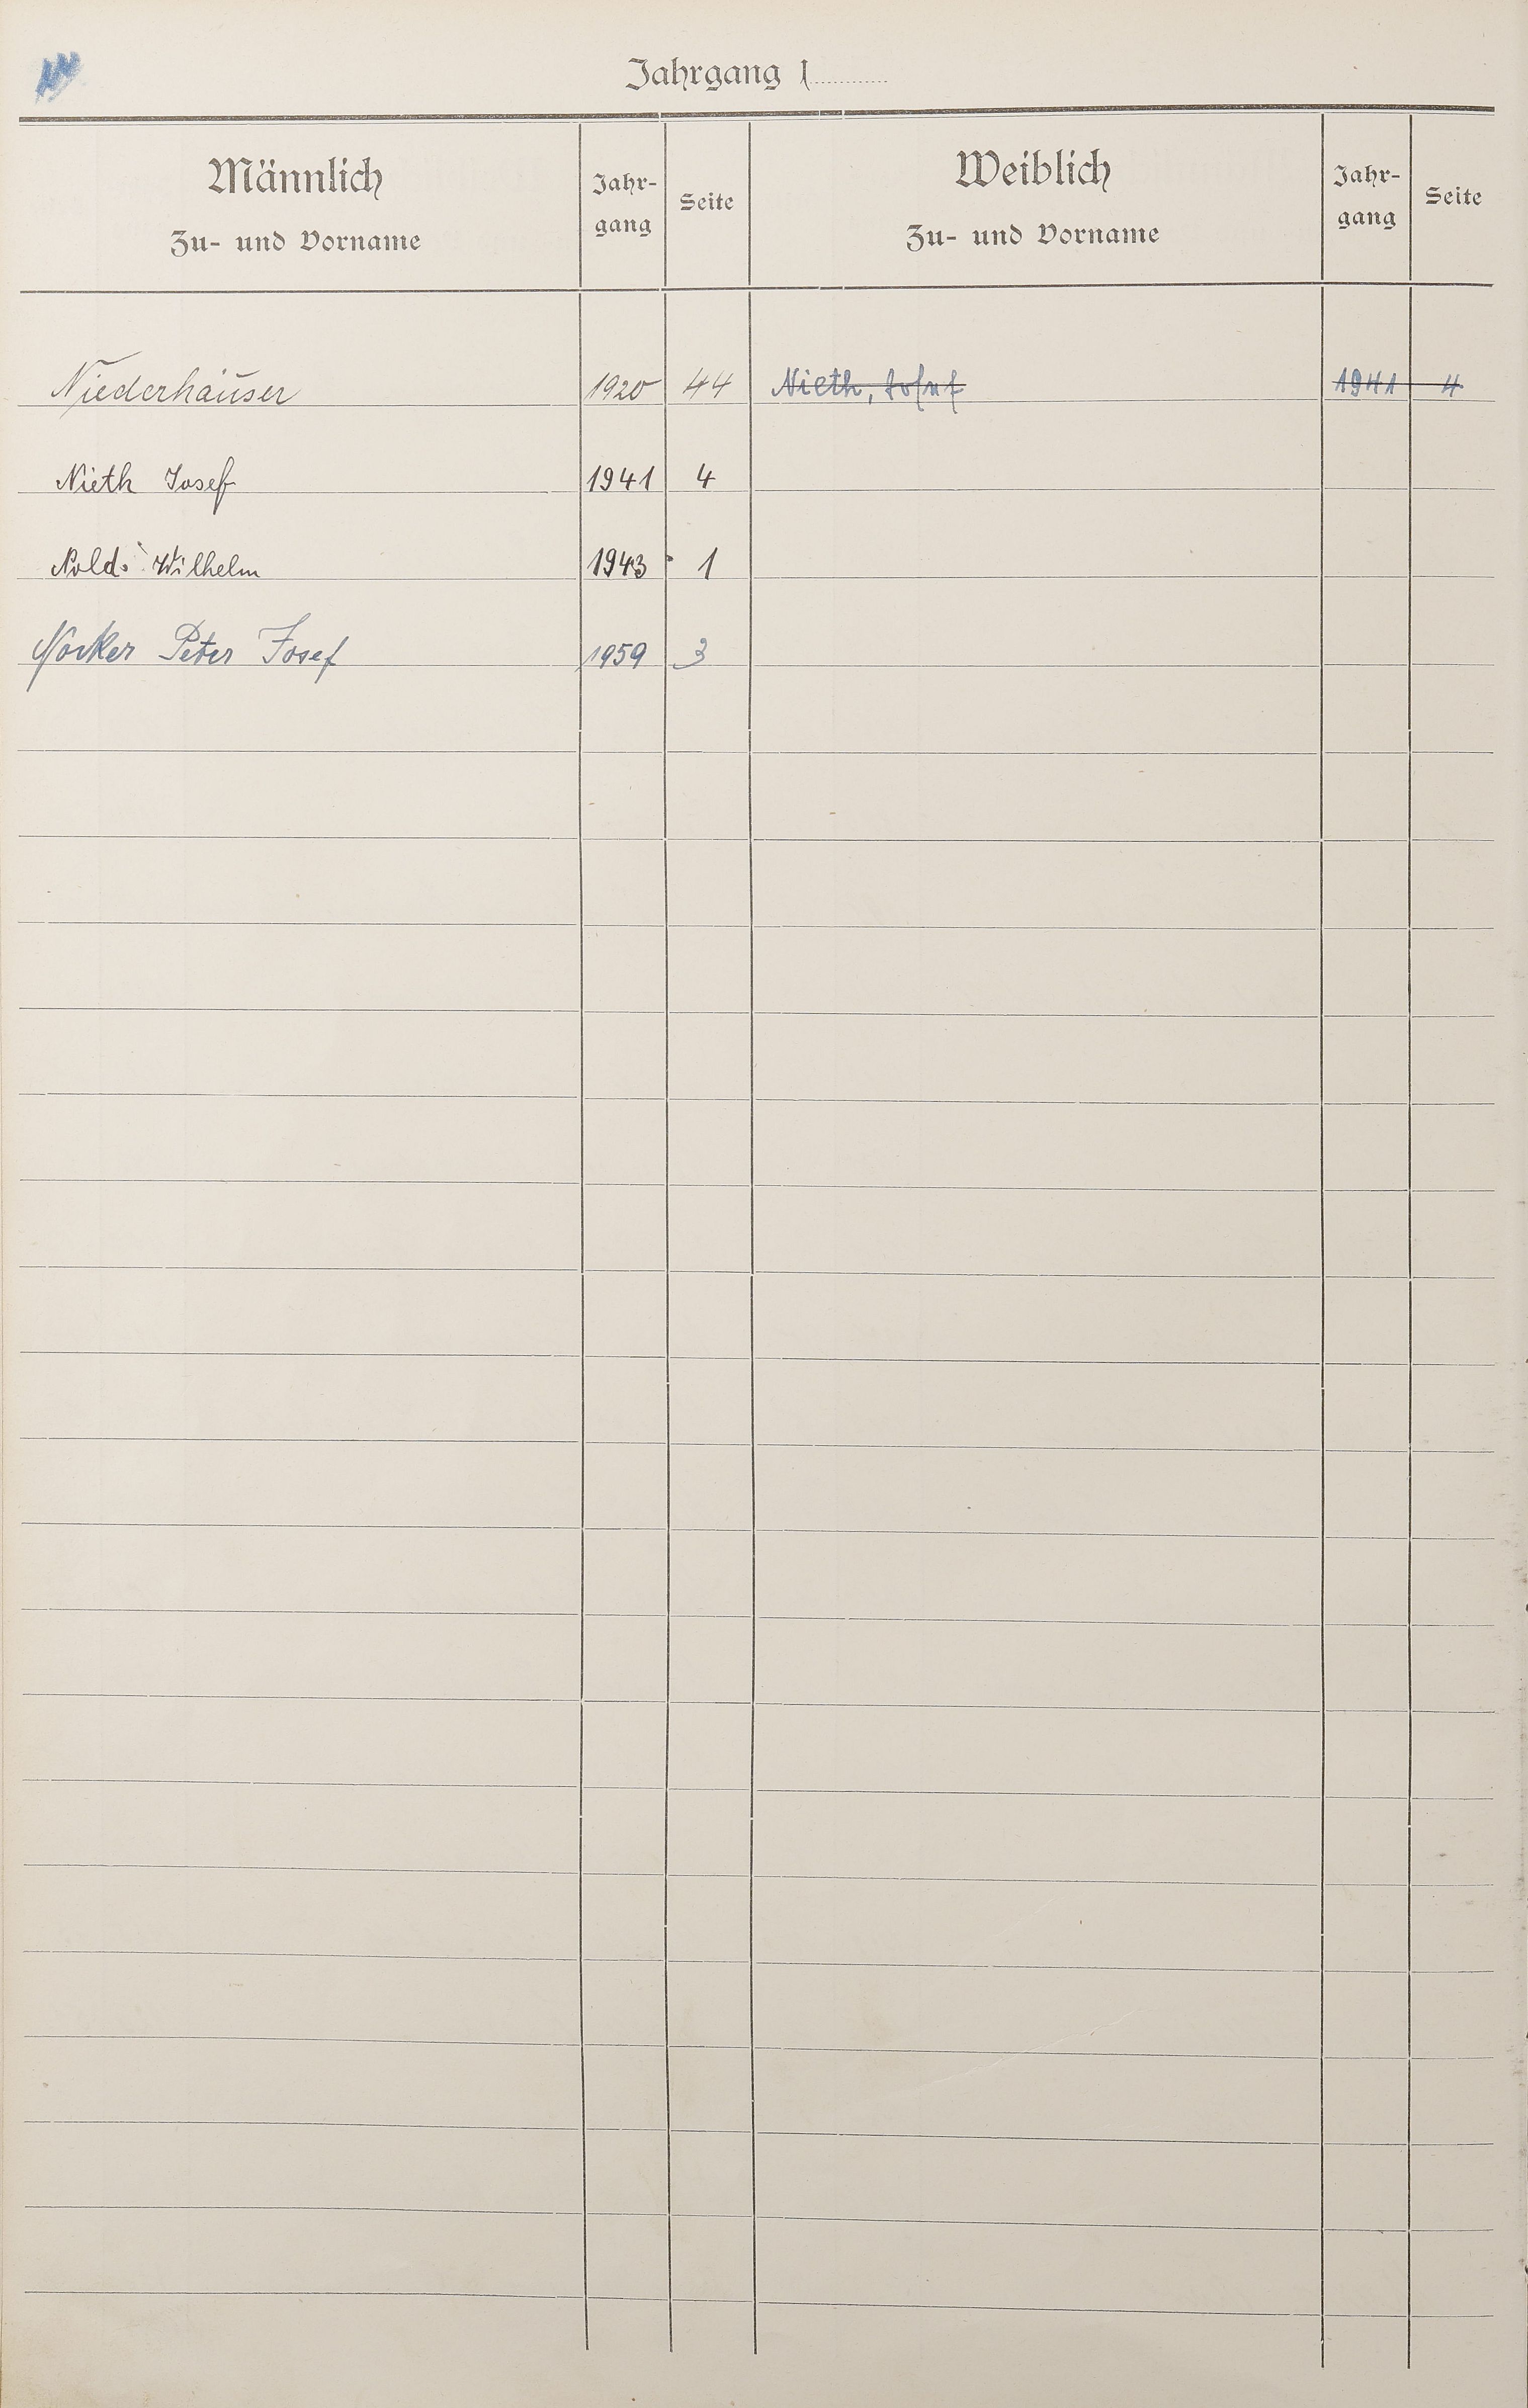 Jahrgang 1
Männlich Jahr- Seite Weiblich Jahr- Seite
Zu- und Vorname gang Zu- und Vorname gang
Niederhäuser 1920 44 Nieth, Josef 1941 4
Nieth Josef 1941 4
Nold Wilhelm 1943 1
Nocker Peter Josef 1959 3